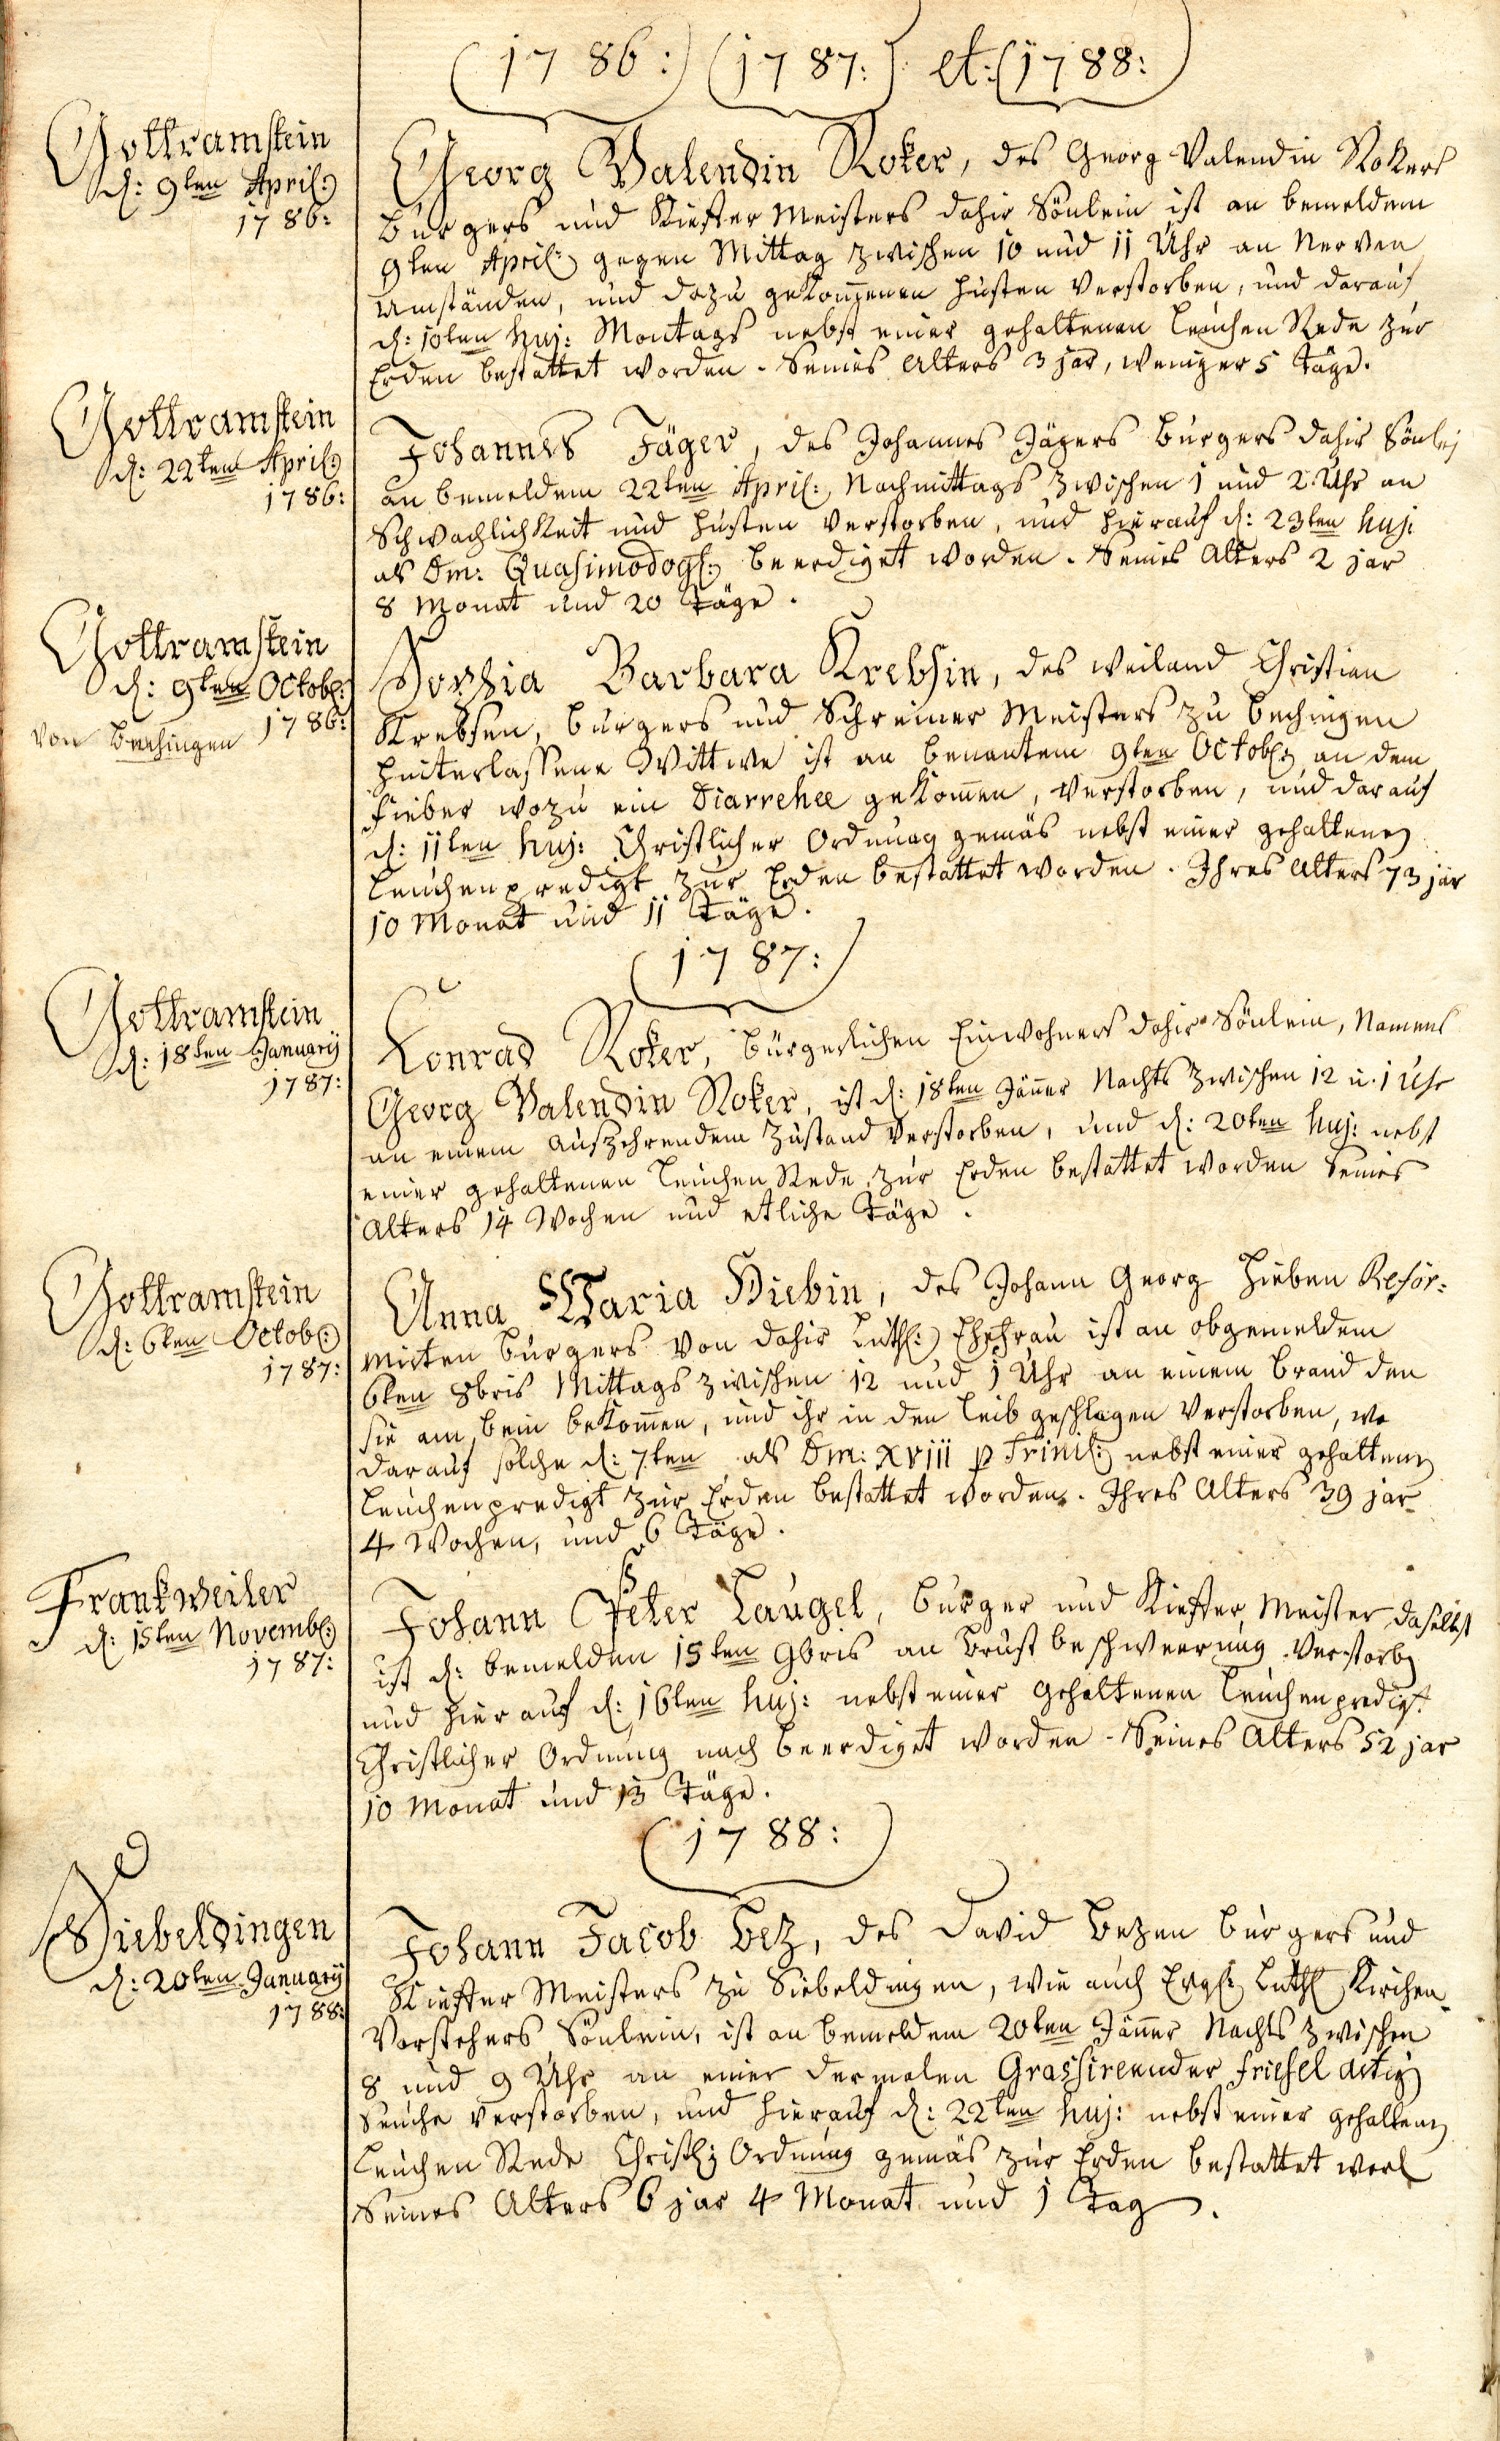 (1786:) (1787:) et: (1788:)
Gottramstein
d: 9ten April:
1786:
Georg Valendin Roker, des Georg Valendin Rokers
Burgers und Kieffer Meisters dahir Sönlein ist an bemeldem
9ten April: gegen Mittag zwischen 10 und 11 Uhr an Nerven
Umständen, und dazu gekommenen Husten verstorben, und darauf
d: 10ten huj: Montags nebst einer gehaltenen Leuchen Rede zur
Erden bestattet worden. Seines Alters 3 jar, weniger 5 Täge.
Gottramstein
d: 22ten April:
1786:
Johannes Jäger, des Johannes Jägers Burgers dahir Sönlei
an bemeldem 22ten April: Nachmittags zwischen 1 und 2 Uhr an
Schwachlichkeit und Husten verstorben, und hierauf d: 23ten huj:
als Dm: Quasimodog: beerdiget worden. Seines Alters 2 jar
8 Monat und 20 Täge.
Gottramstein
d: 9ten Octob:
1786:
von Bechingen
Sophia Barbara Krebsin, des weiland Christian
Krebsen, Burgers und Schreiner Meisters zu Bechingen
hinterlassene Wittwe ist an benantem 9ten Octob: an dem
Fieber wozu ein Diarrehee gekommen, verstorben, und darauf
d: 11ten huj: Christlicher Ordnung gemäs nebst einer gehaltenen
Leuchenpredigt zur Erden bestattet worden. Ihres Alters 73 jar
10 Monat und 11 Täge.
(1787:)
Gottramstein
d: 18ten January
1787:
Konrad Roker, Bürgerlichen Einwohners dahir Sönlein, Namens
Georg Valendin Roker, ist d: 18ten Jänner Nachts zwischen 12 u. 1 Uhr
an einem auszehrendem Zustand verstorben, und d: 20ten huj: nebst
einer gehaltenen Leuchen Rede zur Erden bestattet worden Seines
Alters 14 Wochen und etliche Täge.
Gottramstein
d: 6ten Octob:
1787:
Anna Maria Hiebin, des Johann Georg Hieben Refor-
mirten Burgers von dahir Luth: Ehefrau ist an obgemeldem
6ten 8bris Mittags zwischen 12 und 1 Uhr an einem Brand den
sie am bein bekommen, und ihr in den Leib geschlagen verstorben, wo
darauf solche d: 7ten als Dm: XVIII p Trinit: nebst einer gehaltenen
Leuchenpredigt zur Erden bestattet worden. Ihres Alters 39 jar
4 Wochen, und 6 Täge.
Frankweiler
d: 15ten Novemb:
1787:
Johann Peter Laugel, Burger und Kieffer Meister daselbst
ist d: bemelden 15ten 9bris an Brust beschweerung verstorben
und hierauf d: 16ten huj: nebst einer gehaltenen Leuchenpredigt
Christlicher Ordnung nach beerdiget worden. Seines Alters 52 jar
10 Monat und 13 Täge.
(1788:)
Siebeldingen
d: 20ten January
1788:
Johann Jacob Bez, des David Bezen Burgers und
Kieffer Meisters zu Siebeldingen, wie auch Evgl: Luth Kirchen-
Vorstehers Sönlein, ist an bemeldem 20ten Jänner Nachts zwischen
8 und 9 Uhr an einer dermalen Grassireender friesel artig
Seuche verstorben, und hierauf d: 22ten huj: nebst einer gehaltenen
Leuchen Rede Christl: Ordnung gemäs zur Erden bestattet
Seines Alters 6 jar 4 Monat und 1 Tag.